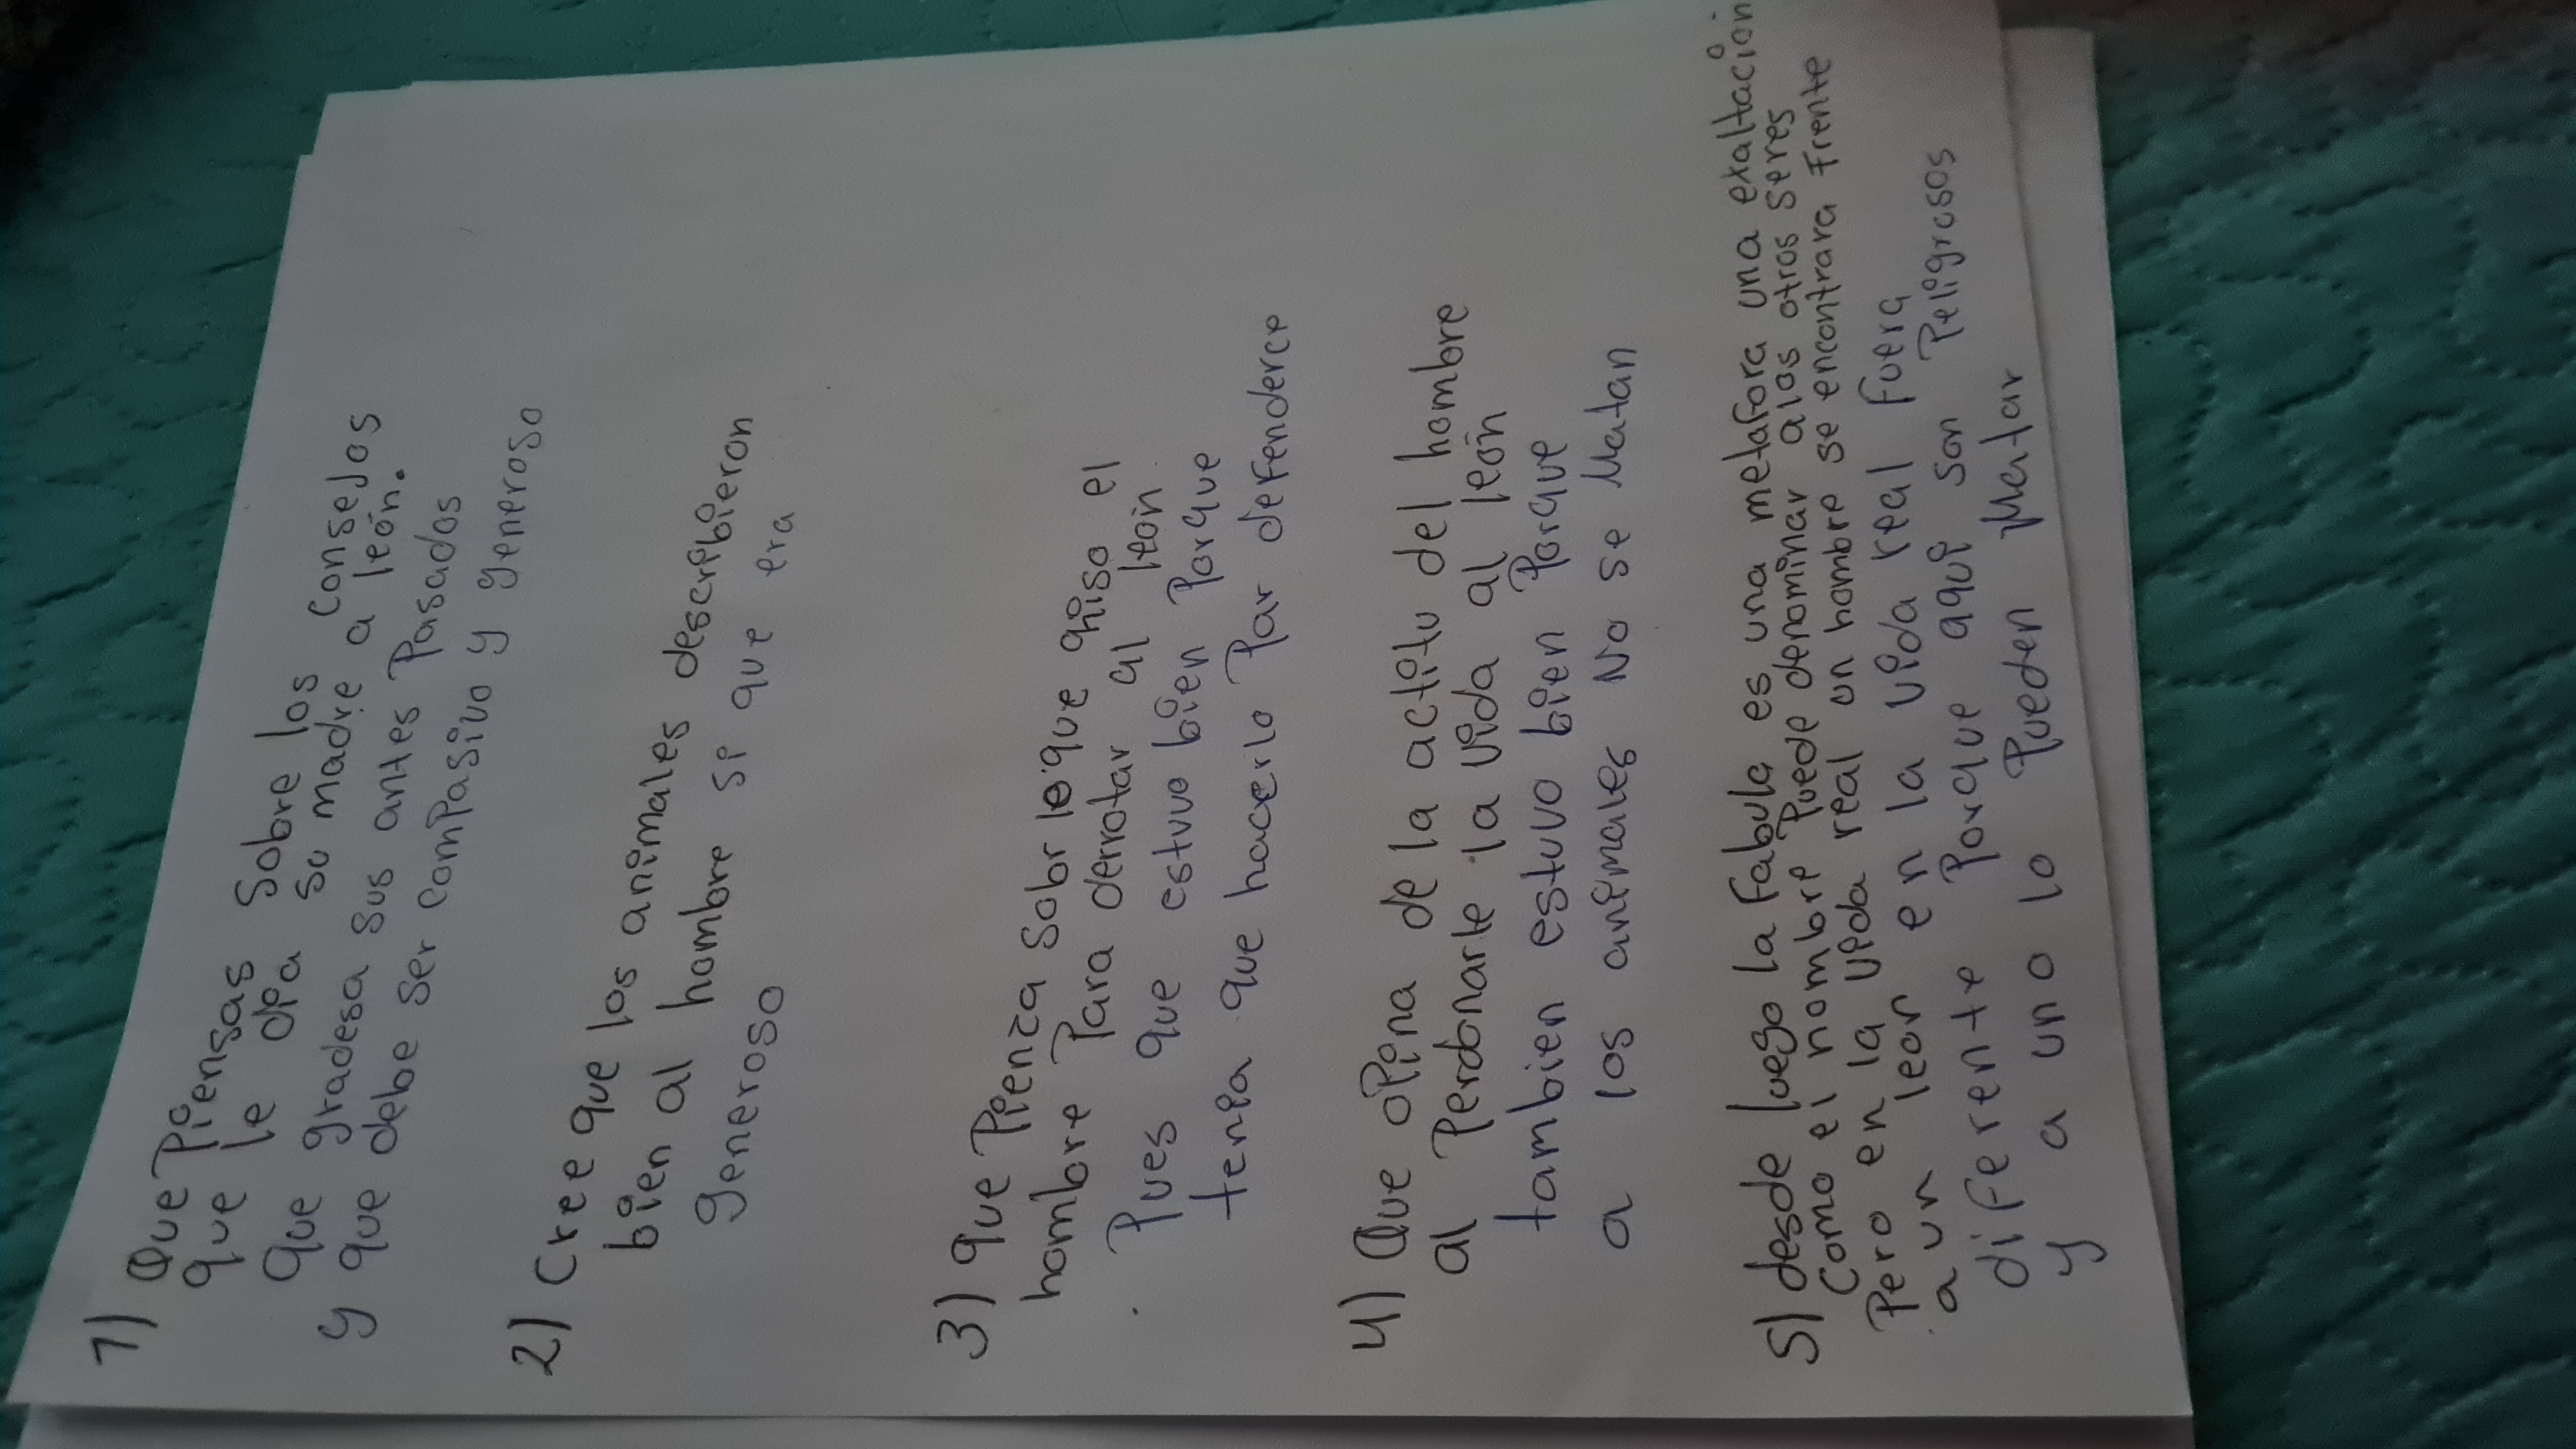 1) Que Piensas Sobre los Consejos
que le dia su madre a león.
Que gradesa sus antes Pasados
y que debe ser comPasivo y generoso
2) Cree que los animales descrebieron
bien al hombre si que era
generoso
3) que Pienza Sobr lo que hiso el
hombre Para derrotar al león
Pues que estuvo bien Porque
tenia que hacerlo Par defenderce
4) Que oPina de la actitu del hombre
al Perdonarle la vida al león
tambien estuvo bien Porque
a los animales No se Matan
5) desde luego la Fabula es una metafora una exaltación
Como el hombre Puede denominar alos otros Seres
Pero en la vida real un hombre se encontrara Frente
a un leon en la vida real Fuera
diferente Porque aqui son Peligrosos
y a uno lo Pueden Matar